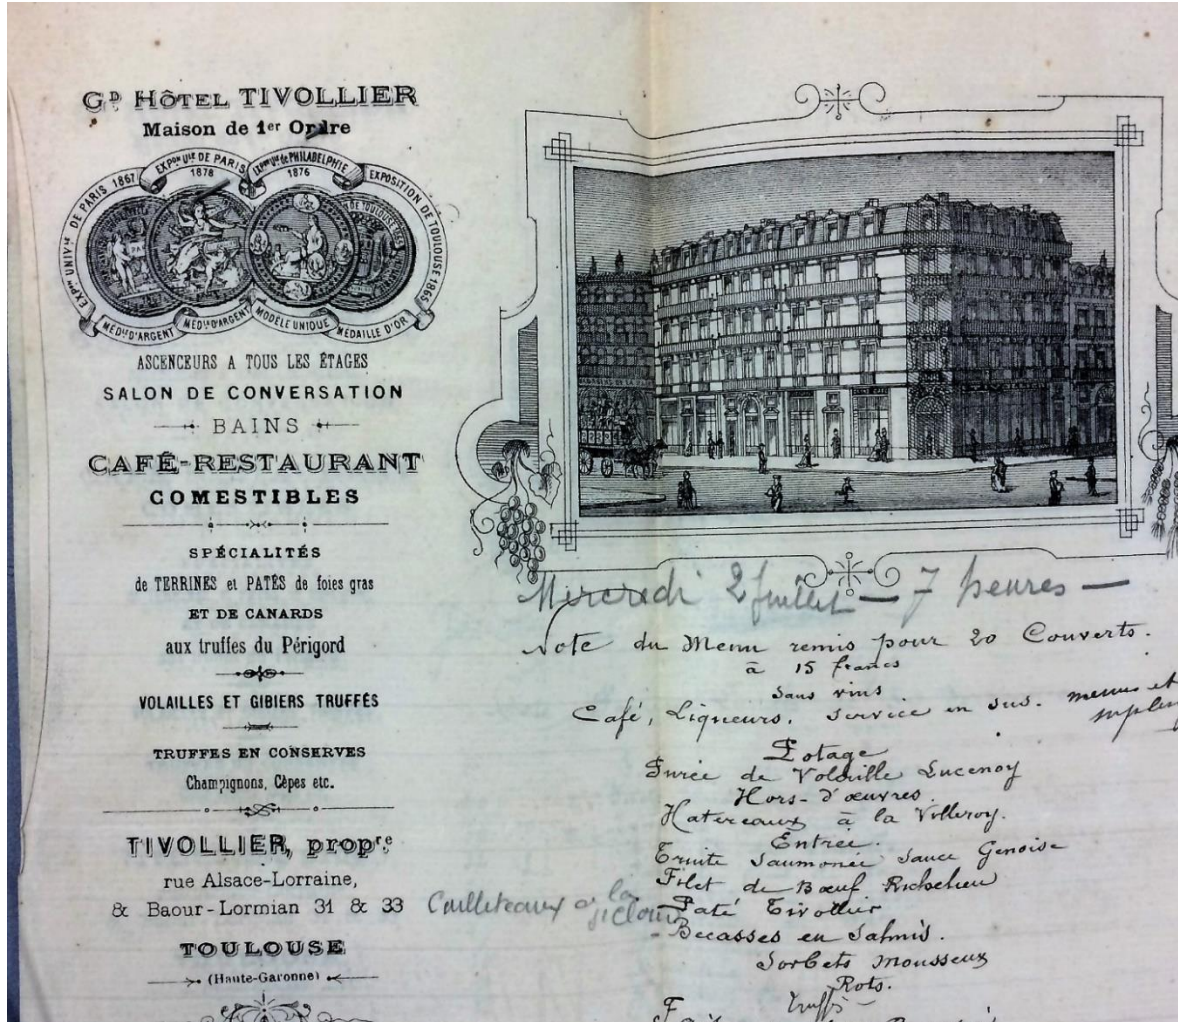 GD HÔTEL TIVOLLIER
Maison de 1er Ordre
EXPon UNIVle DE PARIS 1867
EXPon Ule DE PARIS 1878
EXPon Ule de PHILADELPHIE 1876
EXPOSITION DE TOULOUSE 1865
MEDle D'ARGENT
MEDle D'ARGENT
MODÈLE UNIQUE
MEDAILLE D'OR
ASCENCEURS A TOUS LES ÉTAGES
SALON DE CONVERSATION
BAINS
CAFÉ-RESTAURANT
COMESTIBLES
SPÉCIALITÉS
de TERRINES et PATÉS de foies gras
ET DE CANARDS
aux truffes du Périgord
VOLAILLES ET GIBIERS TRUFFÉS
TRUFFES EN CONSERVES
Champignons, Cèpes etc.
TIVOLLIER, propre
rue Alsace-Lorraine,
& Baour-Lormian 31 & 33
TOULOUSE
(Haute-Garonne)
Mercredi 2 Juillet — 7 heures —
Note du Menu remis pour 20 Couverts.
à 15 francs
sans vins
Café, Liqueurs. Service en sus. menus et
Potage
Purée de Volaille Lucenoy
Hors-d'œuvres.
Hatereaux à la Villeroy.
Entrée.
Truite Saumonée Sauce Genoise
Filet de Bœuf Richelieu
Cailleteaux à la
Paté Tivollier
- Becasses en Salmis.
Sorbets Mousseux
Rots.
truffé